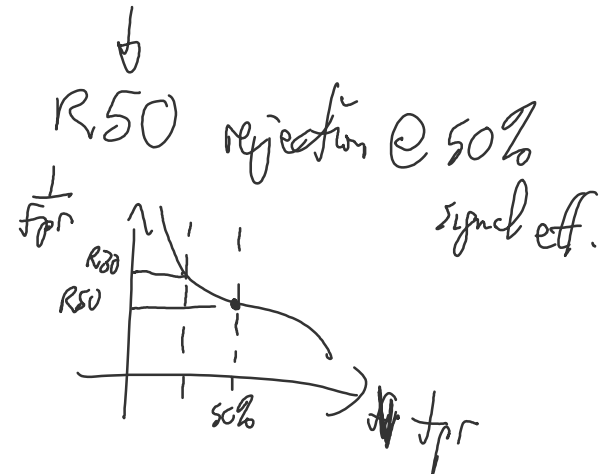 R50 rejection @ 50%
signal eff.
1
fpr
R30
R50
50%
tpr